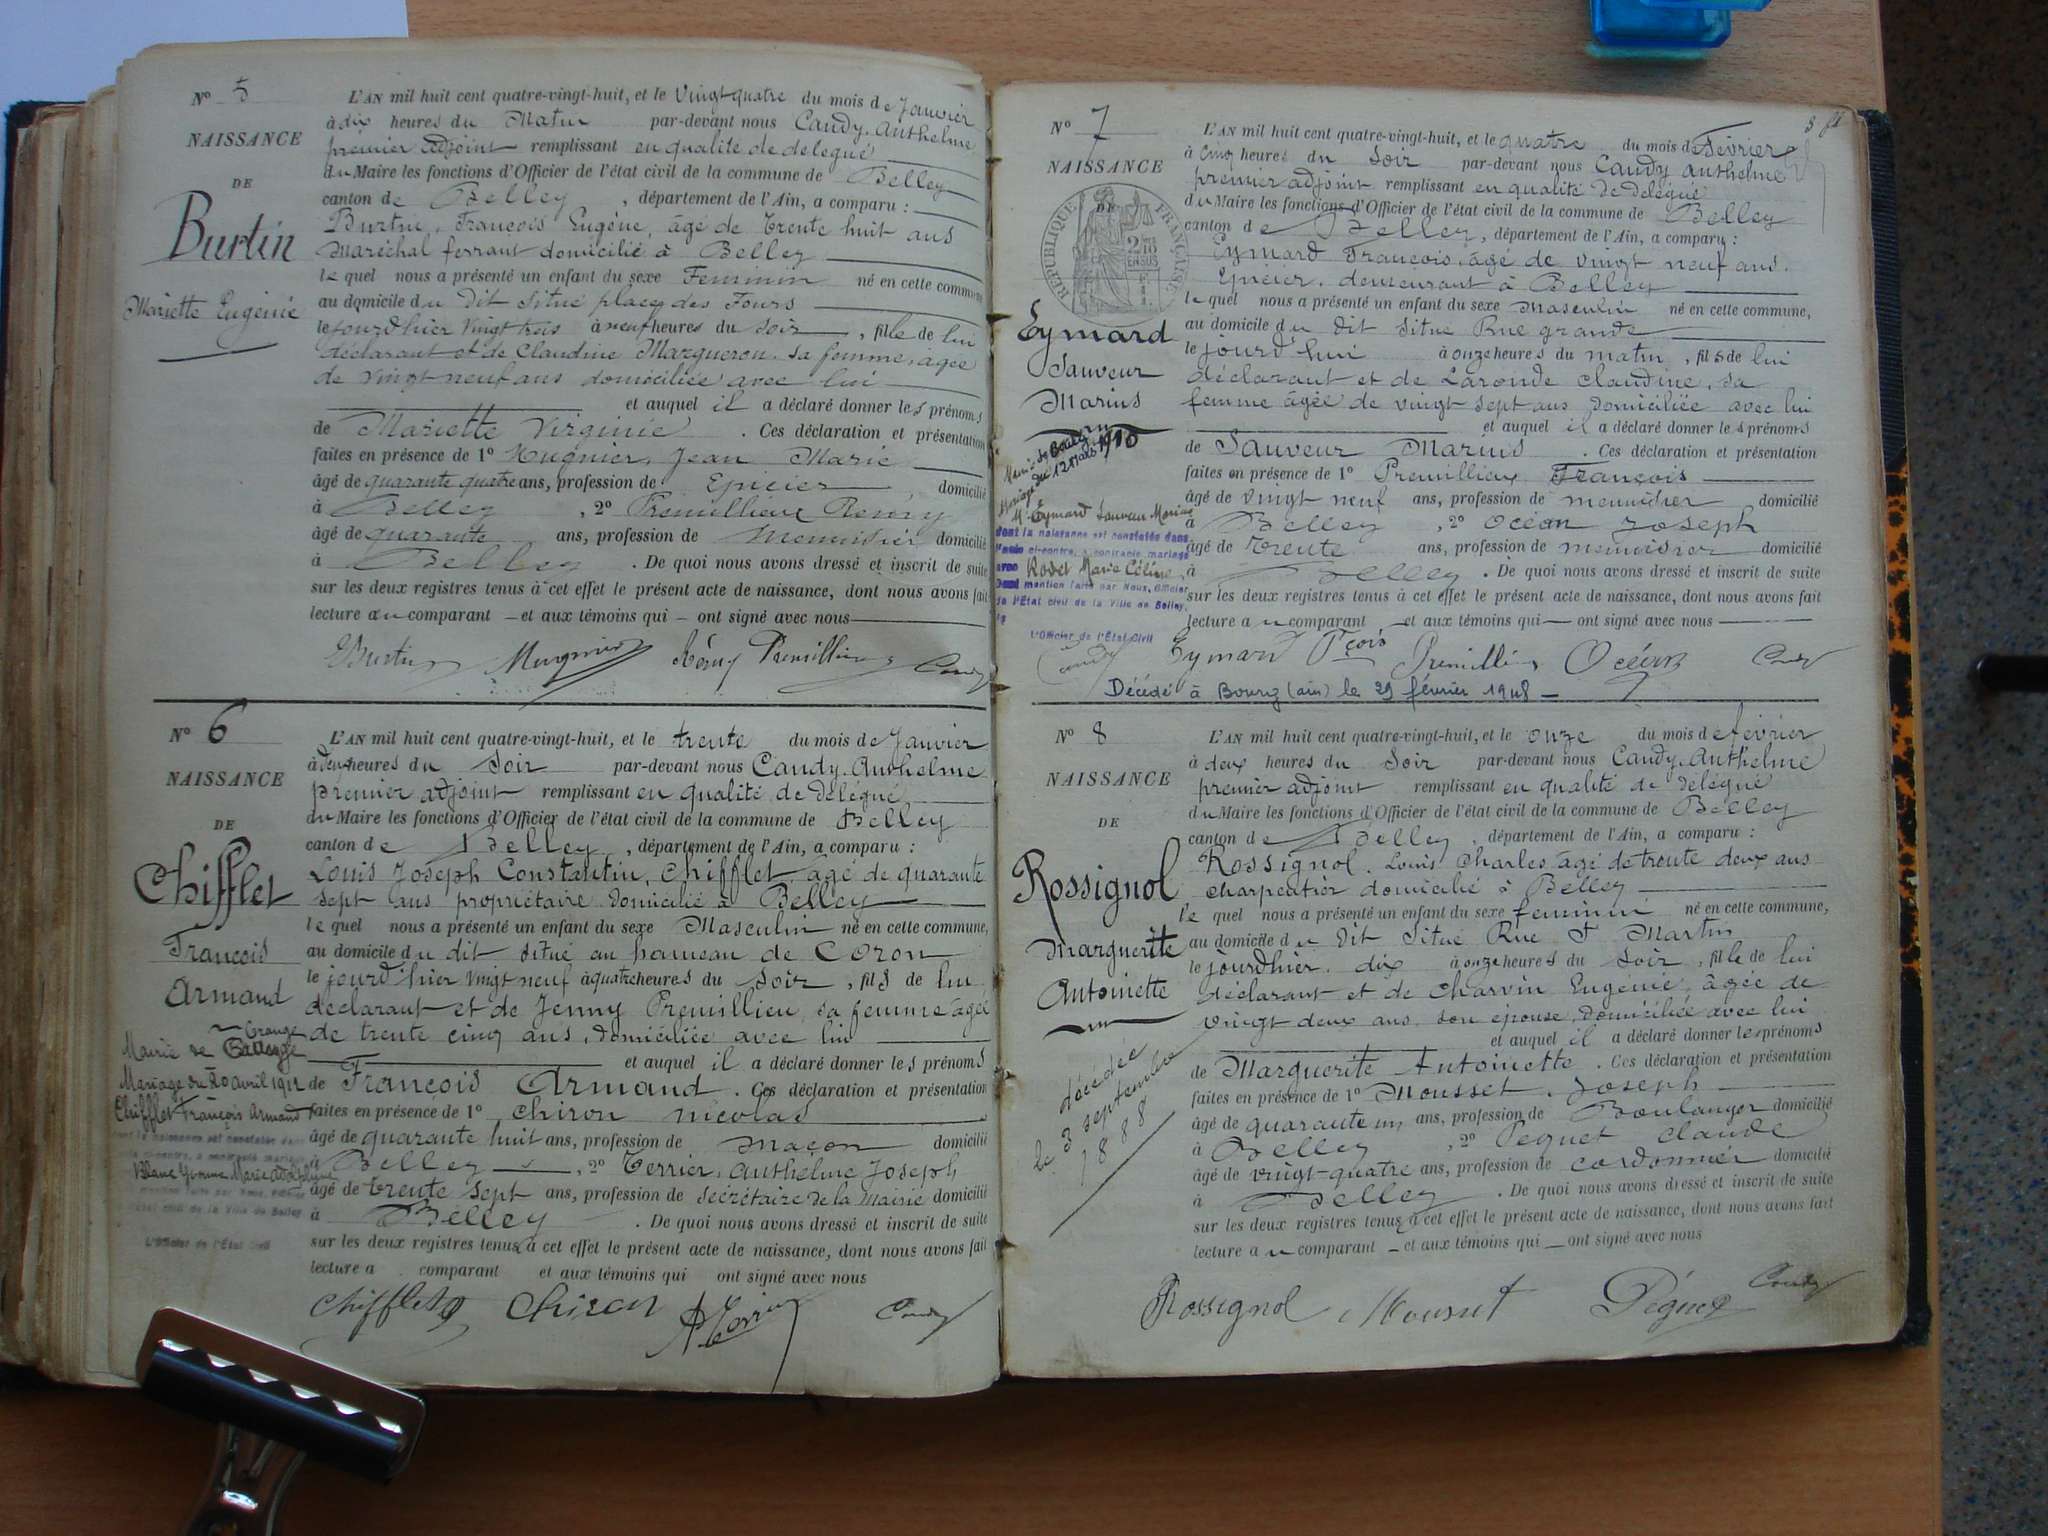 N° 5
NAISSANCE
DE
Burtin
Mariette Eugénie
L'AN mil huit cent quatre-vingt-huit, et le Vingt quatre du mois de Janvier
à dix heures du Matin par-devant nous Candy Anthelme
premier adjoint remplissant en qualité de délégué
du Maire les fonctions d'Officier de l'état civil de la commune de Belley
canton de Belley, département de l'Ain, a comparu :
Burtin, François Eugène, âgé de trente huit ans
Maréchal ferrant domicilié à Belley
lequel nous a présenté un enfant du sexe Feminin né en cette commune
au domicile du dit situé place des Fours
le jourdhier vingt trois à neuf heures du soir, fille de lui
déclarant et de Claudine Margueron sa femme, agée
de vingt neuf ans domiciliée avec lui
et auquel il a déclaré donner les prénoms
de Mariette Virginie. Ces déclaration et présentation
faites en présence de 1° Mugnier, Jean Marie
âgé de quarante quatre ans, profession de Epicier, domicilié
à Belley, 2° Premillieux Remy
âgé de quarante ans, profession de Menuisier domicilié
à Belley. De quoi nous avons dressé et inscrit de suite
sur les deux registres tenus à cet effet le présent acte de naissance, dont nous avons fait
lecture au comparant et aux témoins qui ont signé avec nous
EBurtin Mugnier Rémy Premillieux Candy
N° 6
NAISSANCE
DE
Chifflet
François
Armand
Mairie de Grange
Mariage du 20 avril 1912
Chifflet François Armand
dont la naissance est constatée dans
ci-contre, a contracté mariage
Blanc Yvonne Marie
mention faite par Nous, Officier
l'Etat civil de la Ville de Belley
L'Officier de l'Etat Civil
L'AN mil huit cent quatre-vingt-huit, et le trente du mois de Janvier
à deux heures du Soir par-devant nous Candy Anthelme
premier adjoint remplissant en qualité de délégué
du Maire les fonctions d'Officier de l'état civil de la commune de Belley
canton de Belley, département de l'Ain, a comparu :
Louis Joseph Constantin, Chifflet agé de quarante
sept ans propriétaire domicilié à Belley
lequel nous a présenté un enfant du sexe Masculin né en cette commune,
au domicile du dit situé au hameau de Coron
le jourd'hier vingt neuf à quatre heures du Soir, fils de lui
déclarant et de Jenny Premillieu, sa femme âgée
de trente cinq ans, domiciliée avec lui
et auquel il a déclaré donner les prénoms
de François Armand. Ces déclaration et présentation
faites en présence de 1° Chiron Nicolas
âgé de quarante huit ans, profession de Maçon domicilié
à Belley, 2° Terrier, Anthelme Joseph
âgé de trente sept ans, profession de secrétaire de la Mairie domicilié
à Belley. De quoi nous avons dressé et inscrit de suite
sur les deux registres tenus à cet effet le présent acte de naissance, dont nous avons fait
lecture a comparant et aux témoins qui ont signé avec nous
Chifflet Chiron Candy
N° 7
NAISSANCE
DE
RÉPUBLIQUE FRANÇAISE
Eymard
Sauveur
Marius
Mairie de Bourg
Mariage du 12 Mars 1910
Mr Eymard Sauveur Marius
dont la naissance est constatée dans
l'acte ci-contre, a contracté mariage
avec Rodet Marie Céline
Dont mention faite par Nous, Officier
de l'Etat civil de la Ville de Belley,
le
L'Officier de l'Etat Civil
Candy
L'AN mil huit cent quatre-vingt-huit, et le quatre du mois de Février
à cinq heures du Soir par-devant nous Candy Anthelme
premier adjoint remplissant en qualité de délégué
du Maire les fonctions d'Officier de l'état civil de la commune de Belley
canton de Belley, département de l'Ain, a comparu :
Eymard François, âgé de vingt neuf ans.
Epicier. demeurant à Belley
lequel nous a présenté un enfant du sexe Masculin né en cette commune,
au domicile du dit situé Rue grande
le jourd'hui à onze heures du matin, fils de lui
déclarant et de Laronde Claudine, sa
femme âgée de vingt sept ans domiciliée avec lui
et auquel il a déclaré donner les prénoms
de Sauveur Marius. Ces déclaration et présentation
faites en présence de 1° Premillieux François
âgé de vingt neuf ans, profession de menuisier domicilié
à Belley, 2° Océan Joseph
âgé de trente ans, profession de menuisier domicilié
à Belley. De quoi nous avons dressé et inscrit de suite
sur les deux registres tenus à cet effet le présent acte de naissance, dont nous avons fait
lecture au comparant et aux témoins qui ont signé avec nous
Eymard Fçois Premillieux Océan Candy
Décédé à Bourg (ain) le 29 février 1948
N° 8
NAISSANCE
DE
Rossignol
Marguerite
Antoinette
décédée
le 3 septembre
1888
L'AN mil huit cent quatre-vingt-huit, et le onze du mois de février
à deux heures du Soir par-devant nous Candy Anthelme
premier adjoint remplissant en qualité de délégué
du Maire les fonctions d'Officier de l'état civil de la commune de Belley
canton de Belley, département de l'Ain, a comparu :
Rossignol. Louis Charles âgé de trente deux ans
charpentier domicilié à Belley
lequel nous a présenté un enfant du sexe feminin né en cette commune,
au domicile du dit Situé Rue St Martin
le jourdhier dix à onze heures du Soir, fille de lui
déclarant et de Charvin Eugénie, âgée de
vingt deux ans son épouse, domiciliée avec lui
et auquel il a déclaré donner les prénoms
de Marguerite Antoinette. Ces déclaration et présentation
faites en présence de 1° Mousset. Joseph
âgé de quarante un ans, profession de Boulanger domicilié
à Belley, 2° Peguet Claude
âgé de vingt-quatre ans, profession de cordonnier domicilié
à Belley. De quoi nous avons dressé et inscrit de suite
sur les deux registres tenus à cet effet le présent acte de naissance, dont nous avons fait
lecture au comparant et aux témoins qui ont signé avec nous
Rossignol Mousset Péguet Candy